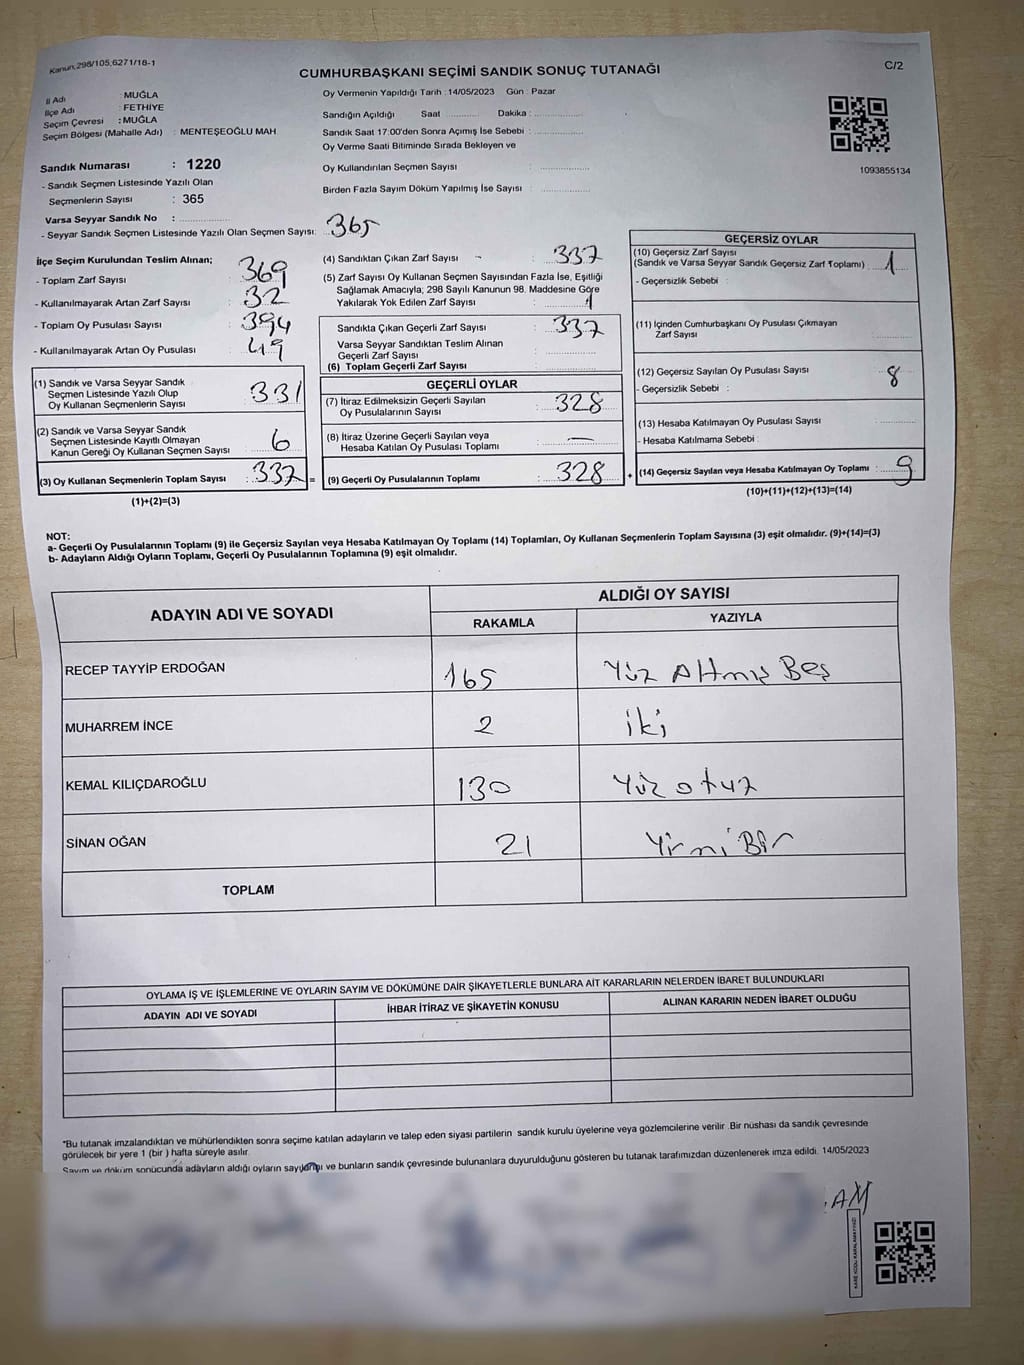 Kanun,298/105,6271/18-1
CUMHURBAŞKANI SEÇİMİ SANDIK SONUÇ TUTANAĞI
C/2
İl Adı : MUĞLA
İlçe Adı : FETHİYE
Seçim Çevresi : MUĞLA
Seçim Bölgesi (Mahalle Adı) : MENTEŞEOĞLU MAH
Sandık Numarası : 1220
- Sandık Seçmen Listesinde Yazılı Olan
Seçmenlerin Sayısı : 365
Varsa Seyyar Sandık No :
- Seyyar Sandık Seçmen Listesinde Yazılı Olan Seçmen Sayısı: 365
Oy Vermenin Yapıldığı Tarih : 14/05/2023 Gün : Pazar
Sandığın Açıldığı Saat Dakika :
Sandık Saat 17:00'den Sonra Açımış İse Sebebi :
Oy Verme Saati Bitiminde Sırada Bekleyen ve
Oy Kullandırılan Seçmen Sayısı :
Birden Fazla Sayım Döküm Yapılmış İse Sayısı :
1093855134
İlçe Seçim Kurulundan Teslim Alınan;
- Toplam Zarf Sayısı : 369
- Kullanılmayarak Artan Zarf Sayısı : 32
- Toplam Oy Pusulası Sayısı : 394
- Kullanılmayarak Artan Oy Pusulası : 49
(1) Sandık ve Varsa Seyyar Sandık
Seçmen Listesinde Yazılı Olup
Oy Kullanan Seçmenlerin Sayısı : 331
(2) Sandık ve Varsa Seyyar Sandık
Seçmen Listesinde Kayıtlı Olmayan
Kanun Gereği Oy Kullanan Seçmen Sayısı : 6
(3) Oy Kullanan Seçmenlerin Toplam Sayısı : 337 =
(1)+(2)=(3)
(4) Sandıktan Çıkan Zarf Sayısı : 337
(5) Zarf Sayısı Oy Kullanan Seçmen Sayısından Fazla İse, Eşitliği
Sağlamak Amacıyla; 298 Sayılı Kanunun 98. Maddesine Göre
Yakılarak Yok Edilen Zarf Sayısı : 1
Sandıkta Çıkan Geçerli Zarf Sayısı : 337
Varsa Seyyar Sandıktan Teslim Alınan
Geçerli Zarf Sayısı :
(6) Toplam Geçerli Zarf Sayısı :
GEÇERLİ OYLAR
(7) İtiraz Edilmeksizin Geçerli Sayılan
Oy Pusulalarının Sayısı : 328
(8) İtiraz Üzerine Geçerli Sayılan veya
Hesaba Katılan Oy Pusulası Toplamı : —
(9) Geçerli Oy Pusulalarının Toplamı : 328 +
GEÇERSİZ OYLAR
(10) Geçersiz Zarf Sayısı
(Sandık ve Varsa Seyyar Sandık Geçersiz Zarf Toplamı) : 1
- Geçersizlik Sebebi :
(11) İçinden Cumhurbaşkanı Oy Pusulası Çıkmayan
Zarf Sayısı :
(12) Geçersiz Sayılan Oy Pusulası Sayısı : 8
- Geçersizlik Sebebi :
(13) Hesaba Katılmayan Oy Pusulası Sayısı :
- Hesaba Katılmama Sebebi :
(14) Geçersiz Sayılan veya Hesaba Katılmayan Oy Toplamı : 9
(10)+(11)+(12)+(13)=(14)
NOT:
a- Geçerli Oy Pusulalarının Toplamı (9) ile Geçersiz Sayılan veya Hesaba Katılmayan Oy Toplamı (14) Toplamları, Oy Kullanan Seçmenlerin Toplam Sayısına (3) eşit olmalıdır. (9)+(14)=(3)
b- Adayların Aldığı Oyların Toplamı, Geçerli Oy Pusulalarının Toplamına (9) eşit olmalıdır.
ADAYIN ADI VE SOYADI
ALDIĞI OY SAYISI
RAKAMLA YAZIYLA
RECEP TAYYİP ERDOĞAN 165 Yüz Altmış Beş
MUHARREM İNCE 2 iki
KEMAL KILIÇDAROĞLU 130 Yüz otuz
SİNAN OĞAN 21 Yirmi Bir
TOPLAM
OYLAMA İŞ VE İŞLEMLERİNE VE OYLARIN SAYIM VE DÖKÜMÜNE DAİR ŞİKAYETLERLE BUNLARA AİT KARARLARIN NELERDEN İBARET BULUNDUKLARI
ADAYIN ADI VE SOYADI İHBAR İTİRAZ VE ŞİKAYETİN KONUSU ALINAN KARARIN NEDEN İBARET OLDUĞU
*Bu tutanak imzalandıktan ve mühürlendikten sonra seçime katılan adayların ve talep eden siyasi partilerin sandık kurulu üyelerine veya gözlemcilerine verilir .Bir nüshası da sandık çevresinde
görülecek bir yere 1 (bir ) hafta süreyle asılır.
Sayım ve döküm sonucunda adayların aldığı oyların sayılarını ve bunların sandık çevresinde bulunanlara duyurulduğunu gösteren bu tutanak tarafımızdan düzenlenerek imza edildi. 14/05/2023
AM